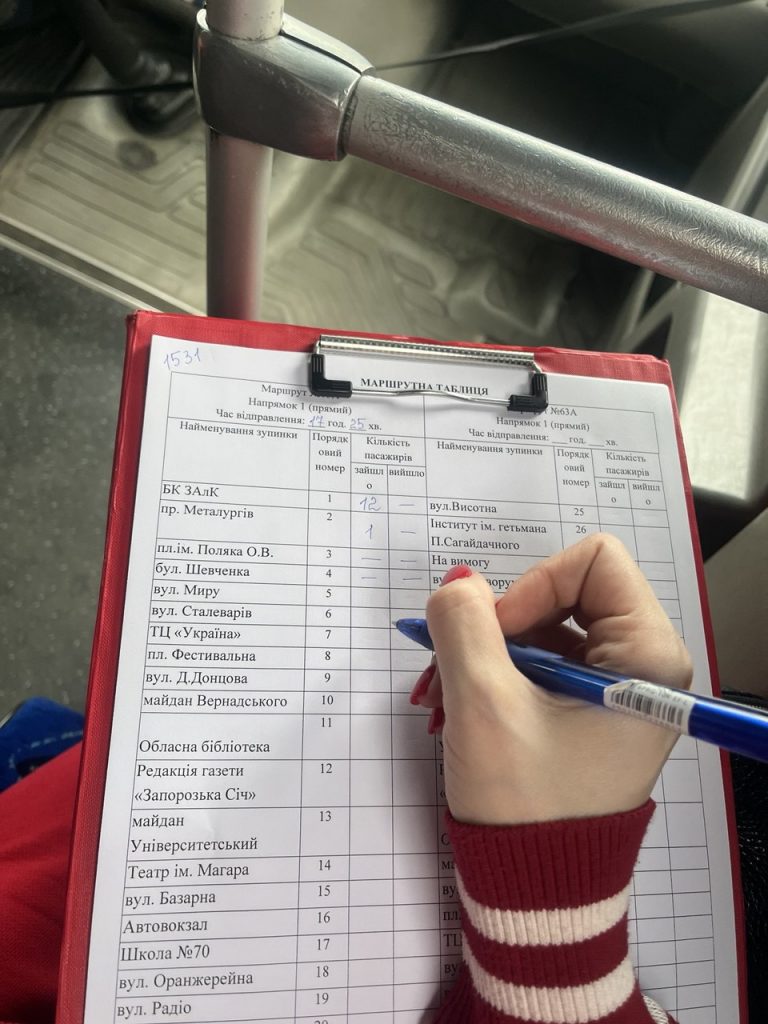 1531
МАРШРУТНА ТАБЛИЦЯ
Маршрут
Напрямок 1 (прямий)
Час відправлення: 17 год. 25 хв.
Найменування зупинки
Порядк
овий
номер
Кількість
пасажирів
зайшл
о
вийшло
БК ЗАлК 1 12 —
пр. Металургів 2 1 —
пл.ім. Поляка О.В. 3 — —
бул. Шевченка 4 — —
вул. Миру 5
вул. Сталеварів 6
ТЦ «Україна» 7
пл. Фестивальна 8
вул. Д.Донцова 9
майдан Вернадського 10
11
Обласна бібліотека
Редакція газети 12
«Запорозька Січ»
майдан 13
Університетський
Театр ім. Магара 14
вул. Базарна 15
Автовокзал 16
Школа №70 17
вул. Оранжерейна 18
вул. Радіо 19
№63А
Напрямок 1 (прямий)
Час відправлення: ___ год. ___ хв.
Найменування зупинки
Порядк
овий
номер
Кількість
пасажирів
зайшл
о
вийшл
о
вул.Висотна 25
Інститут ім. гетьмана 26
П.Сагайдачного
На вимогу